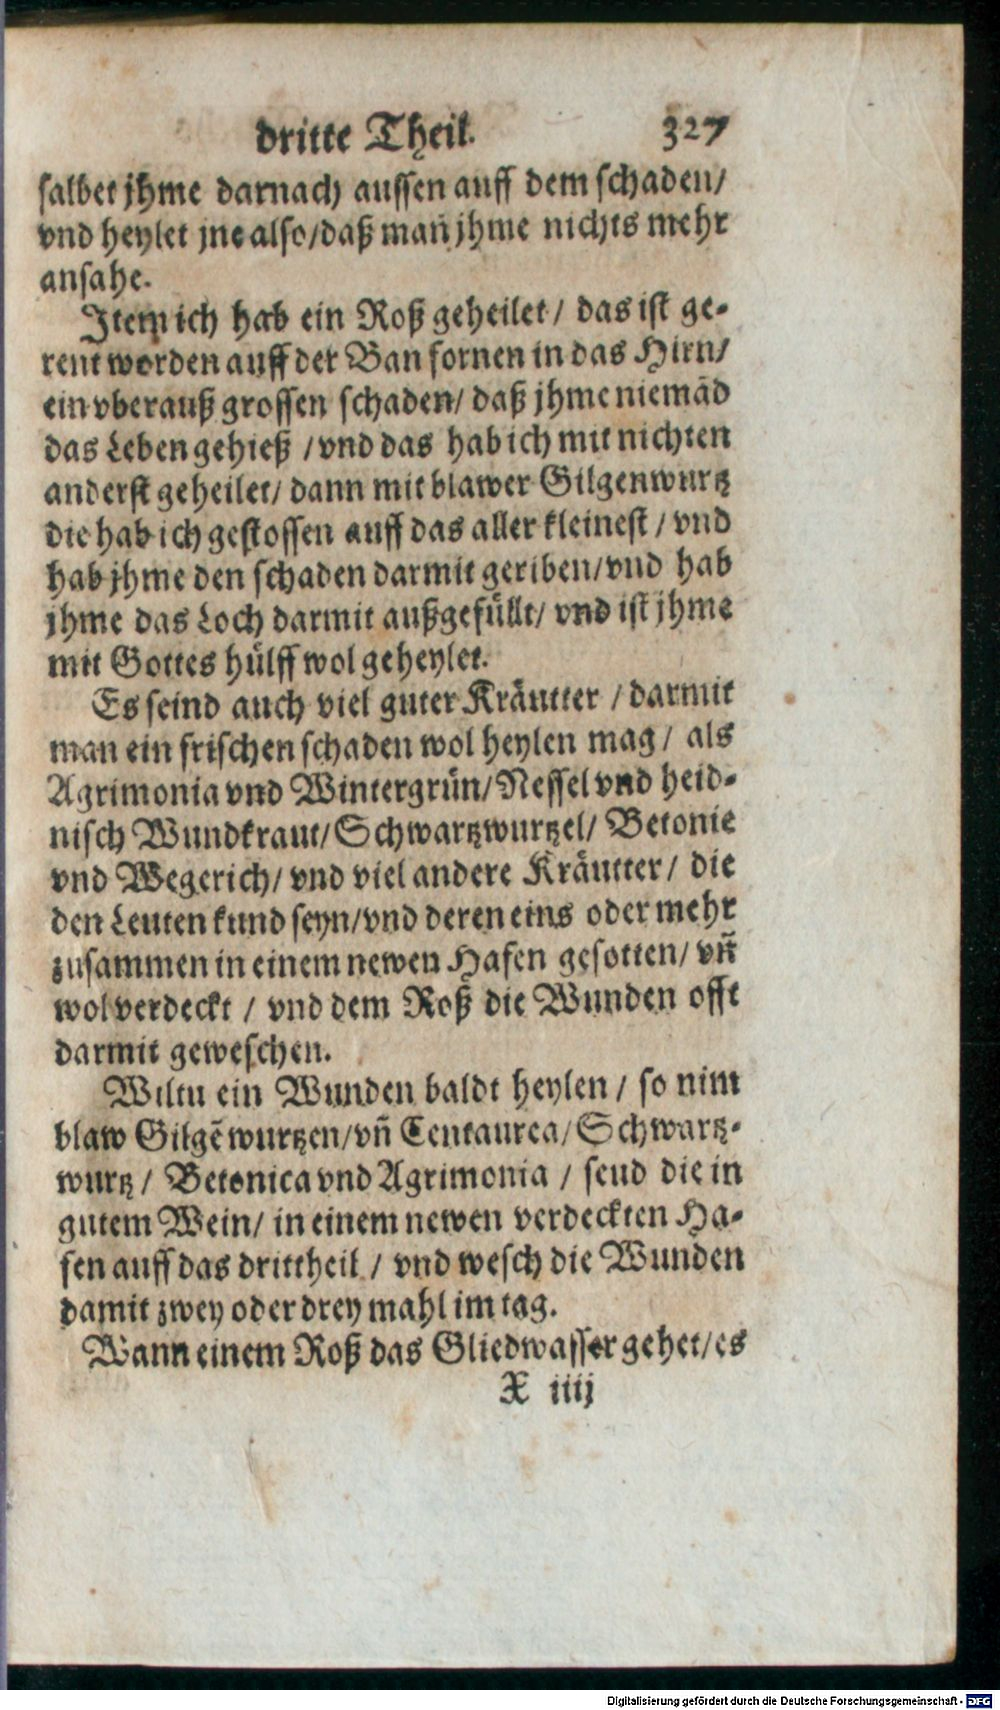 dritte Theil. 327
salbet jhme darnach aussen auff dem schaden/
vnd heylet jne also/daß mañ jhme nichts mehr
ansahe.
Item ich hab ein Roß geheilet/ das ist ge-
rent worden auff der Ban fornen in das Hirn/
ein vberauß grossen schaden/ daß jhme niemãd
das Leben gehieß /vnd das hab ich mit nichten
anderst geheilet/ dann mit blawer Gilgenwurtz
die hab ich gestossen auff das aller kleinest/ vnd
hab jhme den schaden darmit geriben/vnd hab
jhme das Loch darmit außgefüllt/ vnd ist jhme
mit Gottes hülff wol geheylet.
Es seind auch viel guter Kräutter /darmit
man ein frischen schaden wol heylen mag/ als
Agrimonia vnd Wintergrün/Nessel vnd heid-
nisch Wundkraut/Schwartzwurtzel/ Betonie
vnd Wegerich/ vnd viel andere Kräutter/ die
den Leuten kund seyn/vnd deren eins oder mehr
zusammen in einem newen Hafen gesotten/ vñ
wol verdeckt / vnd dem Roß die Wunden offt
darmit geweschen.
Wiltu ein Wunden baldt heylen / so nim
blaw Gilgẽ wurtzen/vñ Centaurea/Schwartz-
wurtz/ Betonica vnd Agrimonia / seud die in
gutem Wein/ in einem newen verdeckten Ha-
fen auff das drittheil / vnd wesch die Wunden
damit zwey oder drey mahl im tag.
Wann einem Roß das Gliedwasser gehet/es
X iiij
Digitalisierung gefördert durch die Deutsche Forschungsgemeinschaft - DFG